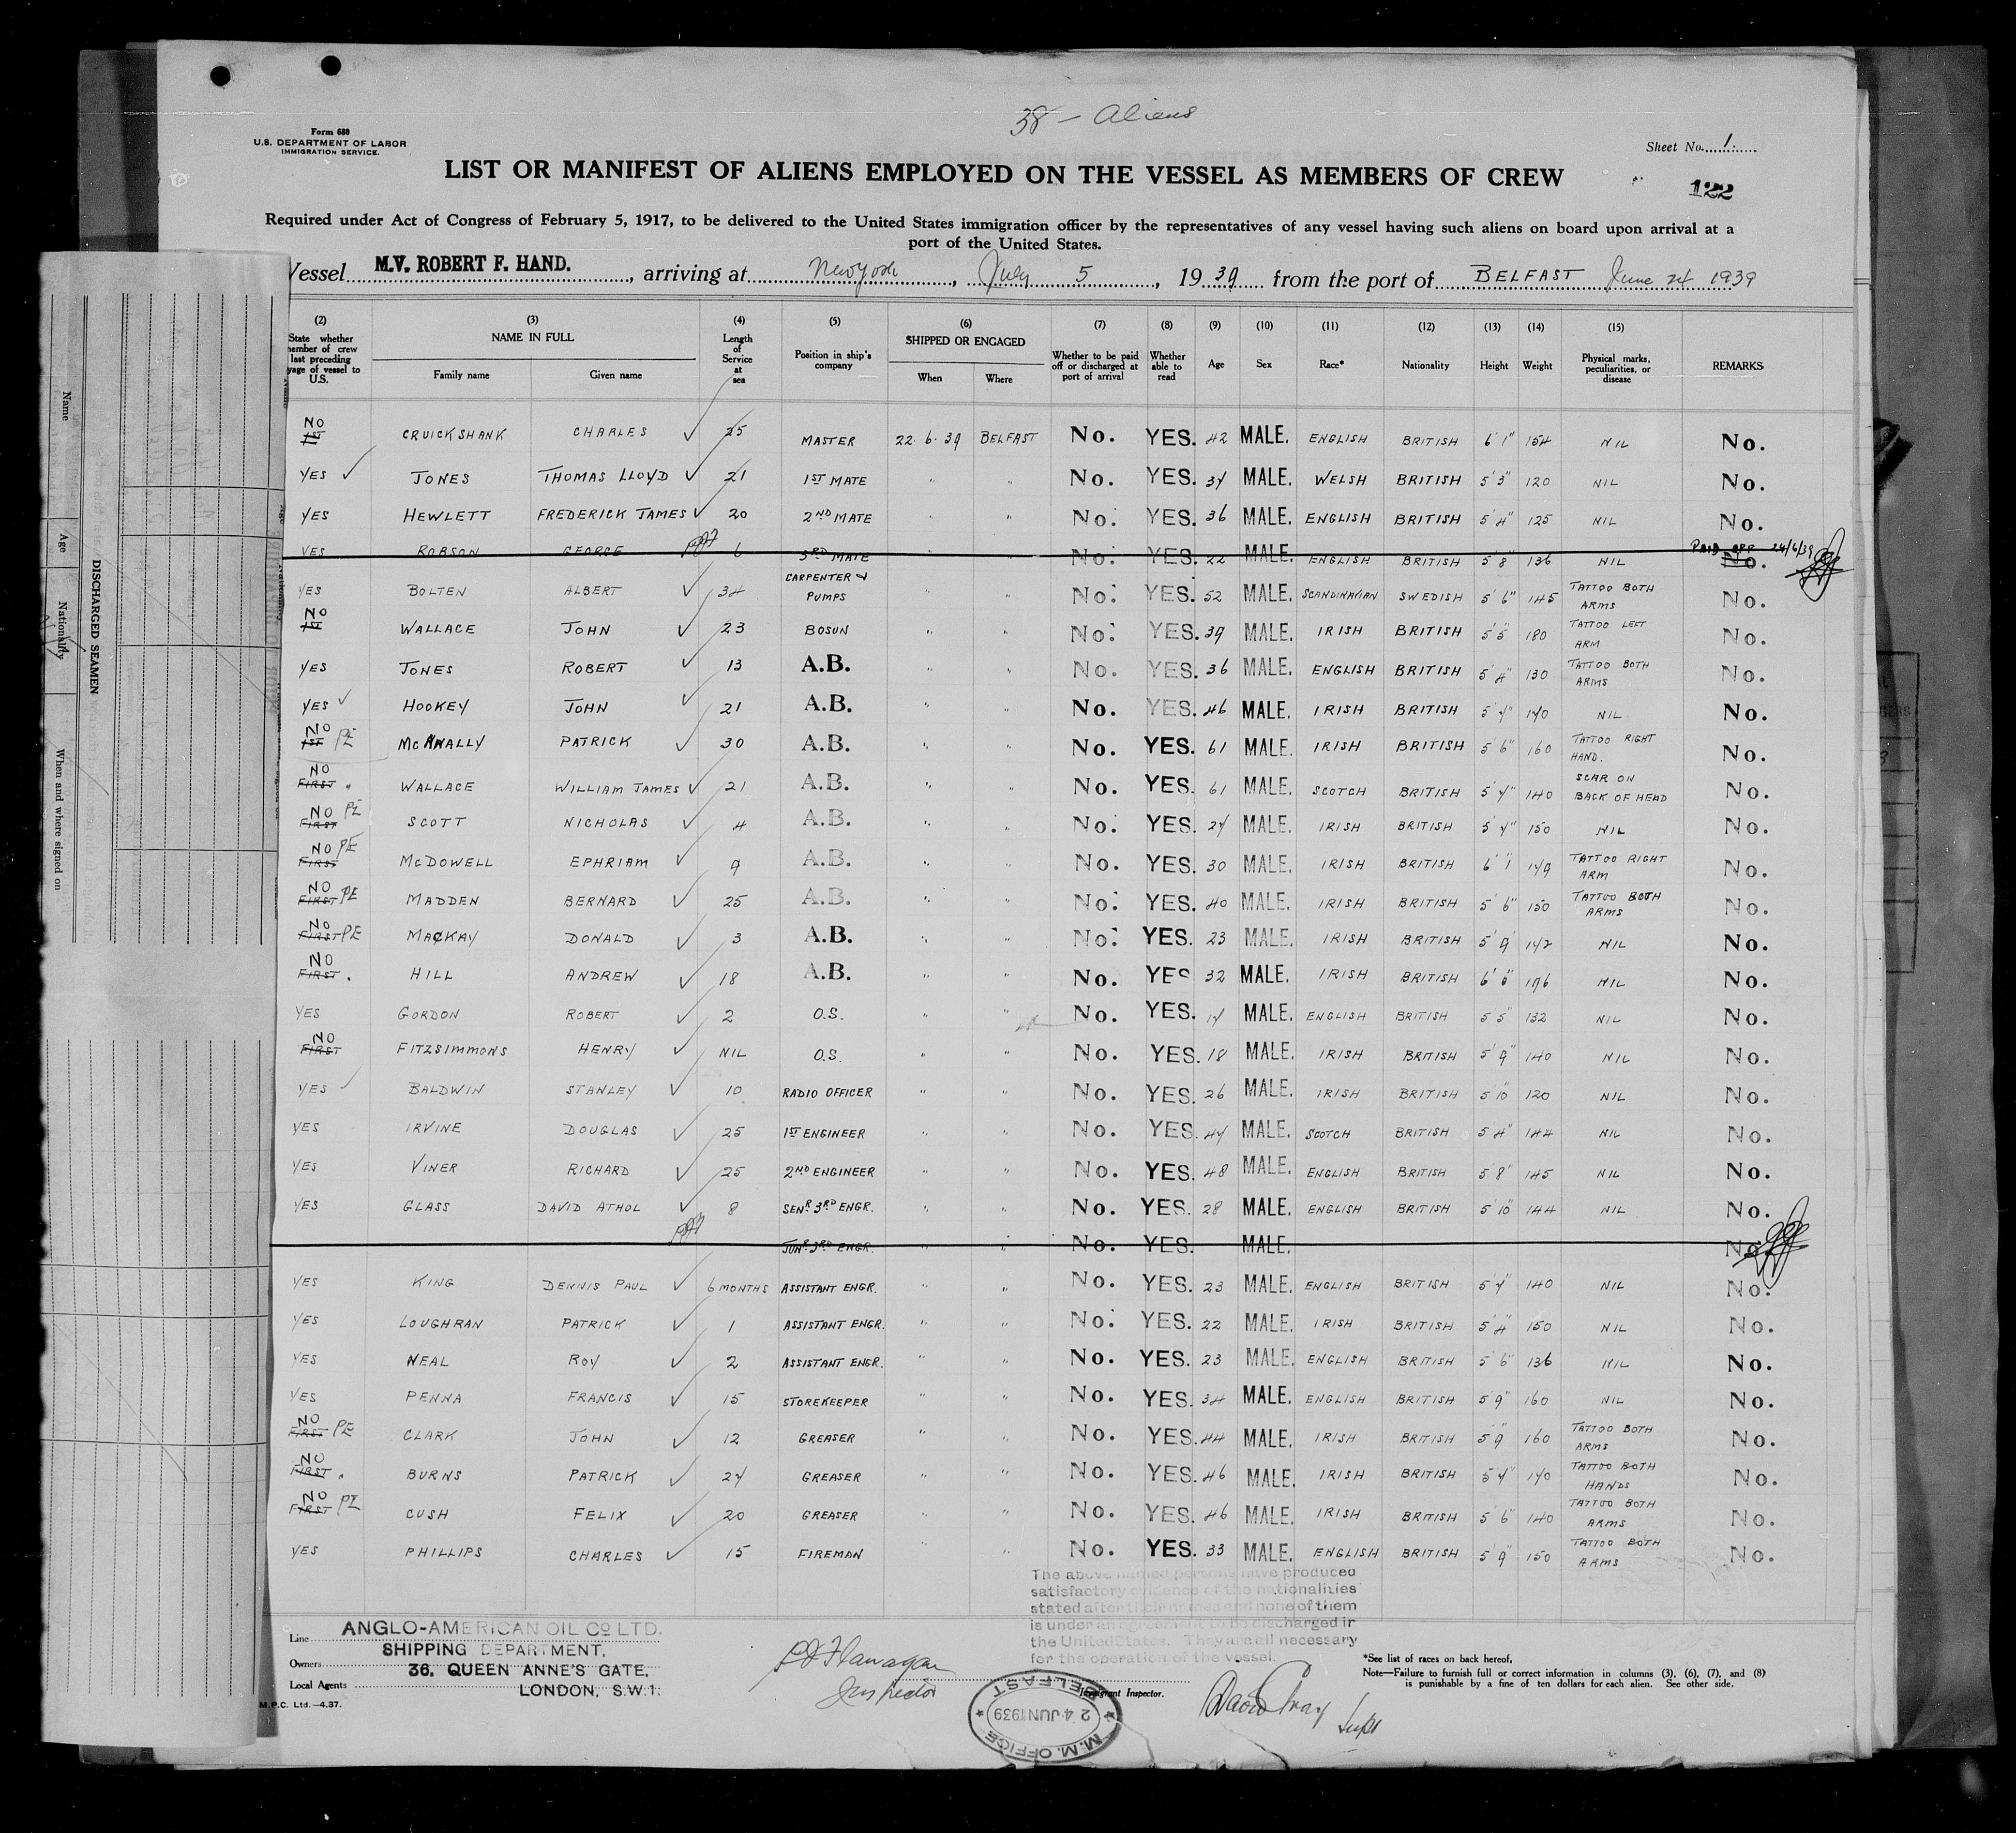 38 - Aliens
Form 680
U.S. DEPARTMENT OF LABOR
IMMIGRATION SERVICE.
Sheet No. 1
LIST OR MANIFEST OF ALIENS EMPLOYED ON THE VESSEL AS MEMBERS OF CREW
122
Required under Act of Congress of February 5, 1917, to be delivered to the United States immigration officer by the representatives of any vessel having such aliens on board upon arrival at a
port of the United States.
Vessel M.V. ROBERT F. HAND., arriving at New York, July 5, 1939 from the port of BELFAST June 24 1939
(2) (3) (4) (5) (6) (7) (8) (9) (10) (11) (12) (13) (14) (15)
State whether member of crew last preceding voyage of vessel to U.S. NAME IN FULL Family name Given name Length of Service at sea Position in ship's company SHIPPED OR ENGAGED When Where Whether to be paid off or discharged at port of arrival Whether able to read Age Sex Race* Nationality Height Weight Physical marks, peculiarities, or disease REMARKS
NO 1ST CRUICKSHANK CHARLES ✓ 25 MASTER 22.6.39 BELFAST No. YES. 42 MALE. ENGLISH BRITISH 6'1" 154 NIL No.
YES ✓ JONES THOMAS LLOYD ✓ 21 1ST MATE " " No. YES. 34 MALE. WELSH BRITISH 5'3" 120 NIL No.
YES HEWLETT FREDERICK JAMES ✓ 20 2ND MATE " " No. YES. 36 MALE. ENGLISH BRITISH 5'4" 125 NIL No.
YES ROBSON GEORGE 6 3RD MATE " " No. YES. 22 MALE. ENGLISH BRITISH 5'8" 136 NIL PAID OFF 24/6/39 No.
YES BOLTEN ALBERT ✓ 34 CARPENTER & PUMPS " " No. YES. 52 MALE. SCANDINAVIAN SWEDISH 5'6" 145 TATTOO BOTH ARMS No.
NO 1ST WALLACE JOHN ✓ 23 BOSUN " " No. YES. 39 MALE. IRISH BRITISH 5'5" 180 TATTOO LEFT ARM No.
YES JONES ROBERT ✓ 13 A.B. " " No. YES. 36 MALE. ENGLISH BRITISH 5'4" 130 TATTOO BOTH ARMS No.
YES ✓ HOOKEY JOHN ✓ 21 A.B. " " No. YES. 46 MALE. IRISH BRITISH 5'7" 170 NIL No.
NO 1ST PE McANALLY PATRICK ✓ 30 A.B. " " No. YES. 61 MALE. IRISH BRITISH 5'6" 160 TATTOO RIGHT HAND. No.
NO FIRST WALLACE WILLIAM JAMES ✓ 21 A.B. " " No. YES. 61 MALE. SCOTCH BRITISH 5'7" 140 SCAR ON BACK OF HEAD No.
NO FIRST PE SCOTT NICHOLAS ✓ 4 A.B. " " No. YES. 27 MALE. IRISH BRITISH 5'7" 150 NIL No.
NO FIRST PE McDOWELL EPHRIAM ✓ 9 A.B. " " No. YES. 30 MALE. IRISH BRITISH 6'1" 179 TATTOO RIGHT ARM No.
NO FIRST PE MADDEN BERNARD ✓ 25 A.B. " " No. YES. 40 MALE. IRISH BRITISH 5'6" 150 TATTOO BOTH ARMS No.
NO FIRST PE MACKAY DONALD ✓ 3 A.B. " " No. YES. 23 MALE. IRISH BRITISH 5'9" 172 NIL No.
NO FIRST . HILL ANDREW ✓ 18 A.B. " " No. YES 32 MALE. IRISH BRITISH 6'0" 196 NIL No.
YES GORDON ROBERT ✓ 2 O.S. " " No. YES. 17 MALE. ENGLISH BRITISH 5'5" 132 NIL No.
NO FIRST FITZSIMMONS HENRY ✓ NIL O.S. " " No. YES. 18 MALE. IRISH BRITISH 5'9" 140 NIL No.
YES ✓ BALDWIN STANLEY ✓ 10 RADIO OFFICER " " No. YES. 26 MALE. IRISH BRITISH 5'10" 120 NIL No.
YES IRVINE DOUGLAS ✓ 25 1ST ENGINEER " " No. YES. 47 MALE. SCOTCH BRITISH 5'4" 144 NIL No.
YES VINER RICHARD ✓ 25 2ND ENGINEER " " No. YES. 48 MALE. ENGLISH BRITISH 5'8" 145 NIL No.
YES GLASS DAVID ATHOL ✓ 8 SENR 3RD ENGR. " " No. YES. 28 MALE. ENGLISH BRITISH 5'10" 144 NIL No.
JUNR 3RD ENGR. " " No. YES. MALE. No
YES KING DENNIS PAUL ✓ 6 MONTHS ASSISTANT ENGR. " " No. YES. 23 MALE. ENGLISH BRITISH 5'7" 140 NIL No.
YES LOUGHRAN PATRICK ✓ 1 ASSISTANT ENGR. " " No. YES. 22 MALE. IRISH BRITISH 5'4" 150 NIL No.
YES NEAL ROY ✓ 2 ASSISTANT ENGR. " " No. YES. 23 MALE. ENGLISH BRITISH 5'6" 136 NIL No.
YES PENNA FRANCIS ✓ 15 STOREKEEPER " " No. YES. 34 MALE. ENGLISH BRITISH 5'9" 160 NIL No.
NO FIRST PE CLARK JOHN ✓ 12 GREASER " " No. YES. 44 MALE. IRISH BRITISH 5'9" 160 TATTOO BOTH ARMS No.
NO FIRST . BURNS PATRICK ✓ 27 GREASER " " No. YES. 46 MALE. IRISH BRITISH 5'7" 170 TATTOO BOTH HANDS No.
NO FIRST PE CUSH FELIX ✓ 20 GREASER " " No. YES. 46 MALE. IRISH BRITISH 5'6" 140 TATTOO BOTH ARMS No.
YES PHILLIPS CHARLES ✓ 15 FIREMAN " " No. YES. 33 MALE. ENGLISH BRITISH 5'9" 150 TATTOO BOTH ARMS No.
The above named persons have produced
satisfactory evidence of the nationalities
stated after their names and none of them
is under an agreement to be discharged in
the United States. They are all necessary
for the operation of the vessel.
Line ANGLO-AMERICAN OIL CO LTD.
SHIPPING DEPARTMENT,
Owners 36, QUEEN ANNE'S GATE,
Local Agents LONDON, S.W.1.
M.P.C. Ltd.—4.37.
Flanagan
Inspector
Immigrant Inspector.
M.M. OFFICE BELFAST
24 JUN 1939
David Gray Supt
*See list of races on back hereof.
Note—Failure to furnish full or correct information in columns (3), (6), (7), and (8)
is punishable by a fine of ten dollars for each alien. See other side.
Name
Age
Nationality
When and where signed on
DISCHARGED SEAMEN